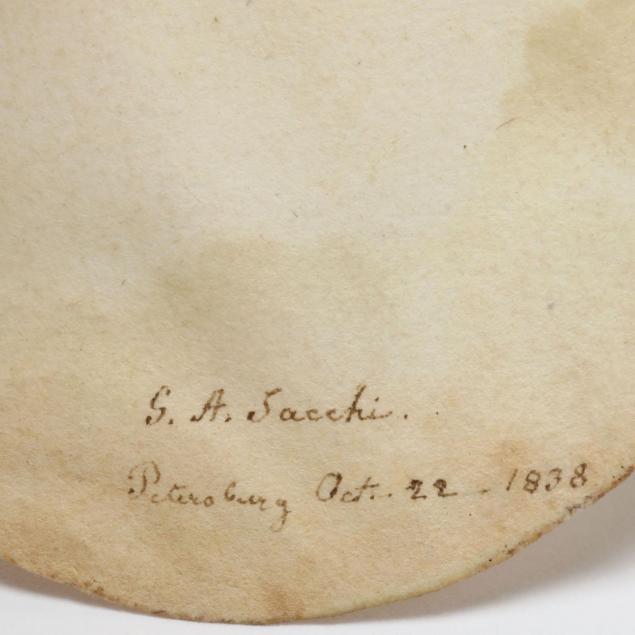 G. A. Sacchi.
Petersburg Oct. 22 - 1838